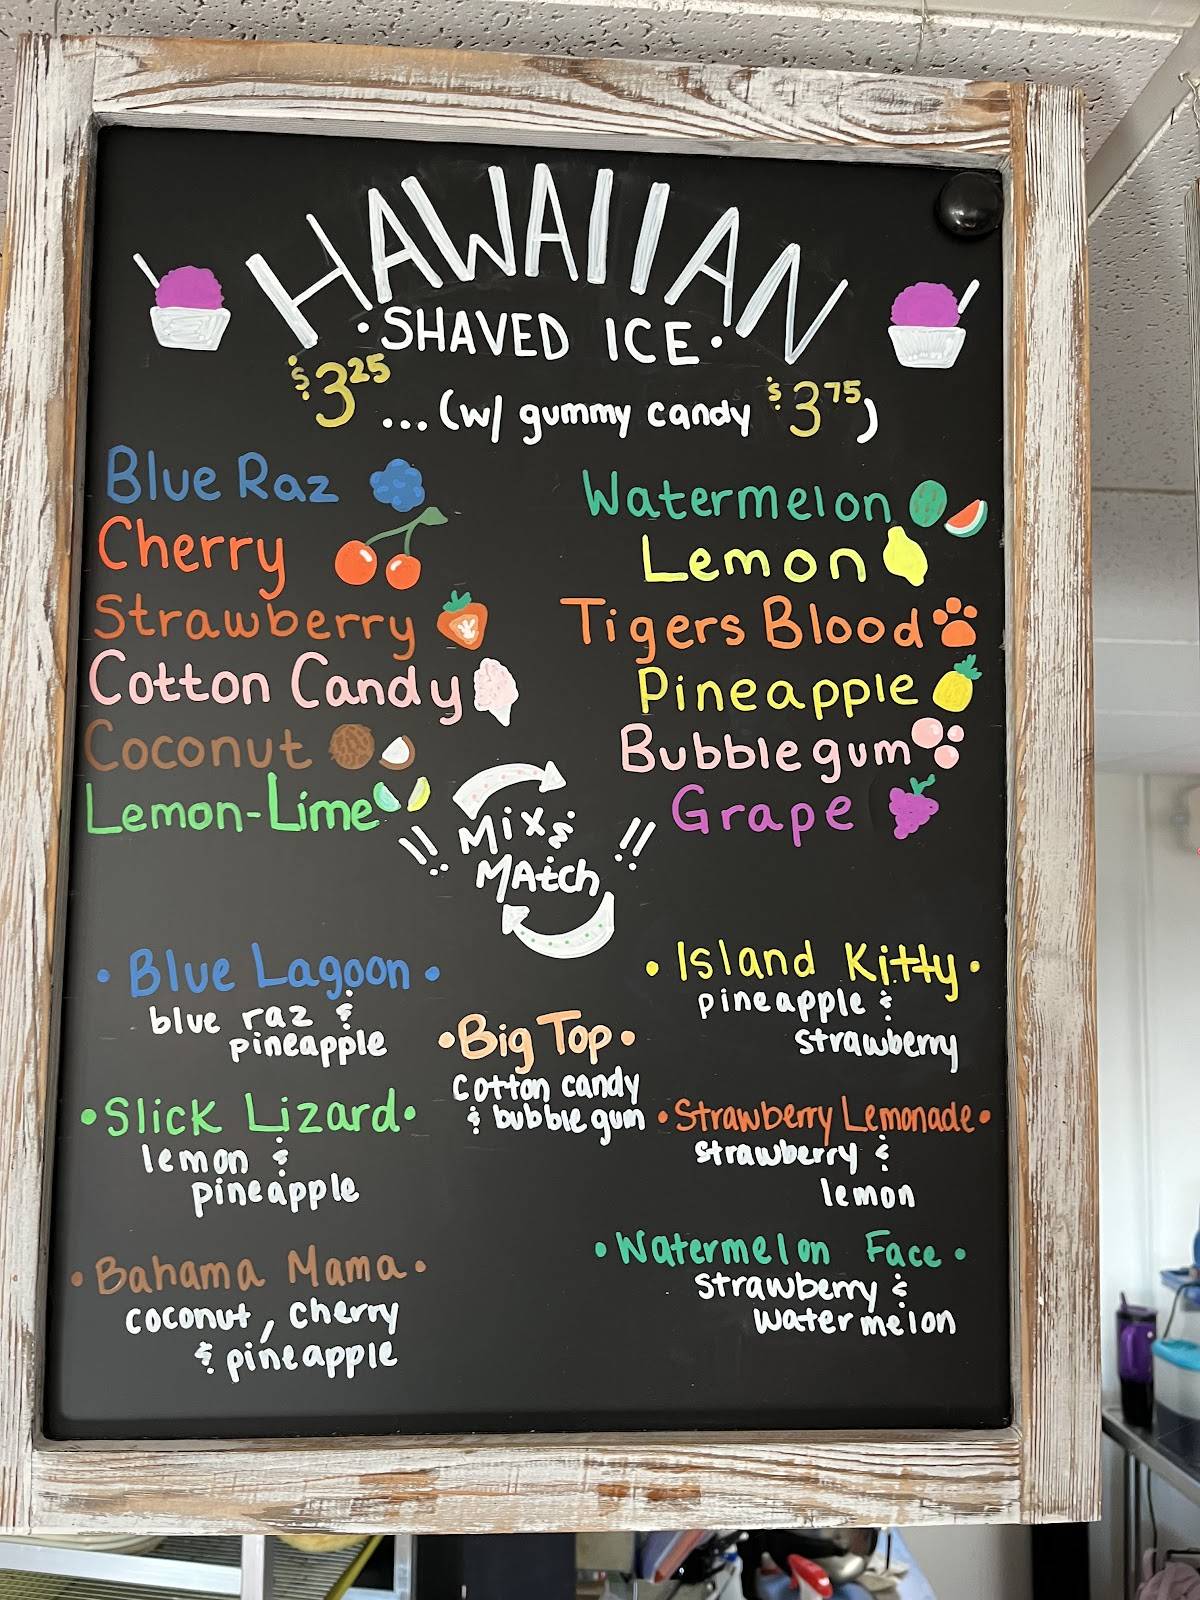 HAWAIIAN
• SHAVED ICE •
$3.25 ... (w/ gummy candy $3.75)
Blue Raz
Cherry
Strawberry
Cotton Candy
Coconut
Lemon-Lime
Watermelon
Lemon
Tigers Blood
Pineapple
Bubblegum
Grape
!! Mix & !!
MAtch
• Blue Lagoon •
blue raz &
pineapple
• Slick Lizard •
lemon &
pineapple
• Bahama Mama •
coconut, cherry
& pineapple
• Big Top •
cotton candy
& bubblegum
• Island Kitty •
pineapple &
strawberry
• Strawberry Lemonade •
strawberry &
lemon
• Watermelon Face •
strawberry &
watermelon